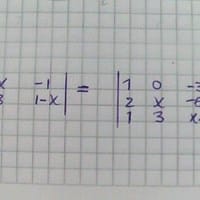 x -1 | = | 1 0 -3
3 1-x | | 2 x -6
1 3 x